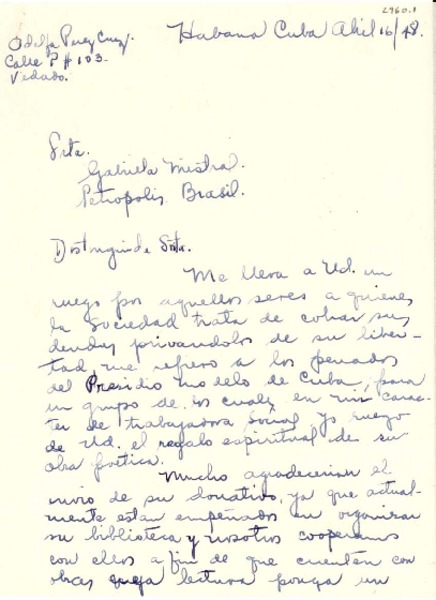 2960.1
Habana Cuba Abil 16/48.
Odelfa Perez Cruz.
Calle P # 103.
Vedado.
Srta.
Gabriela Mistral.
Petropolis Brasil.
Distinguida Srta.
Me lleva a Ud. un
ruego por aquellos seres a quienes
la Sociedad trata de cobrar sus
deudas privandolos de su liber-
tad, me refiero a los penados
del Presidio modelo de Cuba, para
un grupo de los cuales en mi carac-
ter de trabajadora social yo ruego
de Ud. el regalo espiritual de su
obra poética.
Mucho agradecerian el
envio de su donativo, ya que actual-
mente estan empeñados en organizar
su biblioteca y nosotros cooperamos
con ellos a fin de que cuenten con
obras cuya lectura ponga un